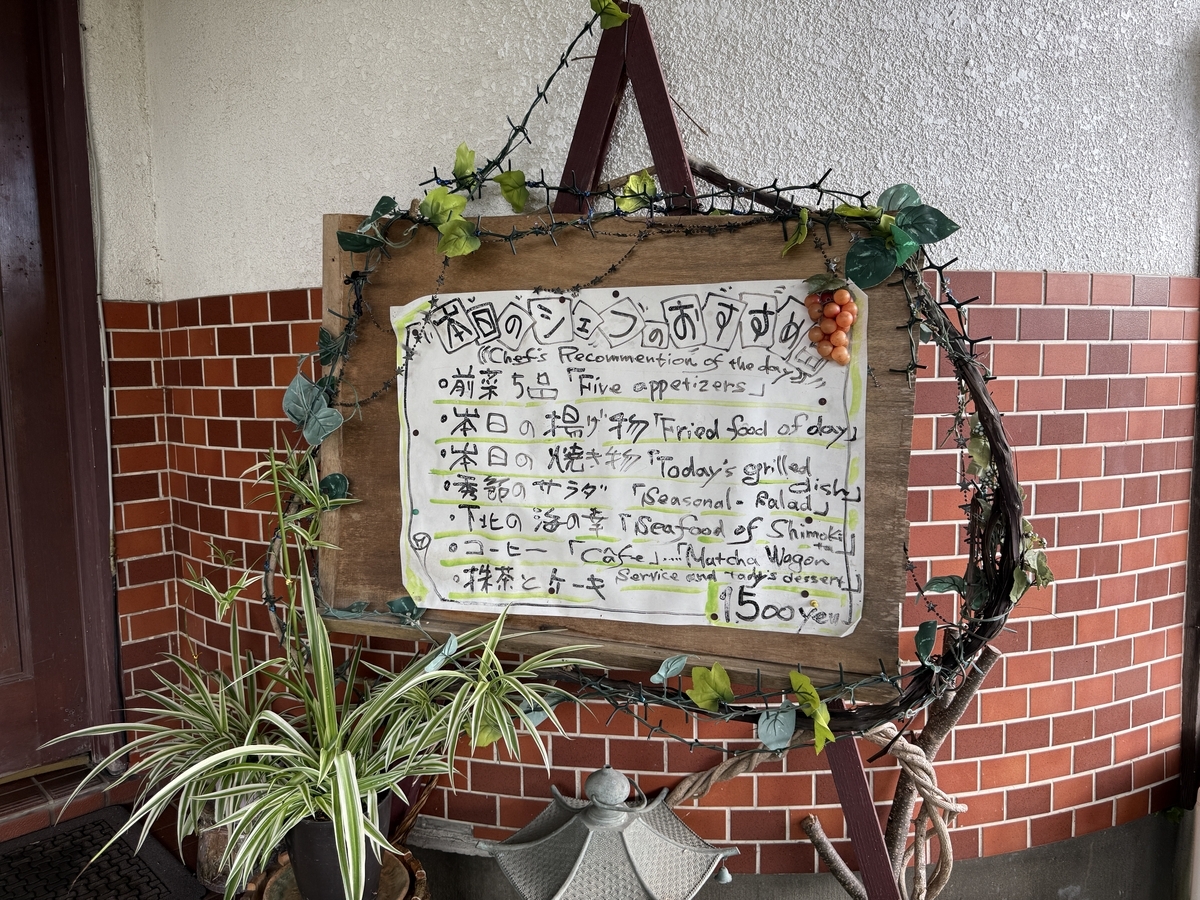 本日のシェフのおすすめ
《Chef's Recommention of the day》
・前菜5品「Five appetizers」
・本日の揚げ物「Fried food of day」
・本日の焼き物「Today's grilled dish」
・季節のサラダ「Seasonal-Salad」
・下北の海の幸「Seafood of Shimokita」
・コーヒー「Câfe」....「Matcha Wagon
・抹茶とケーキ Service and Tady's dessert」
1500yen